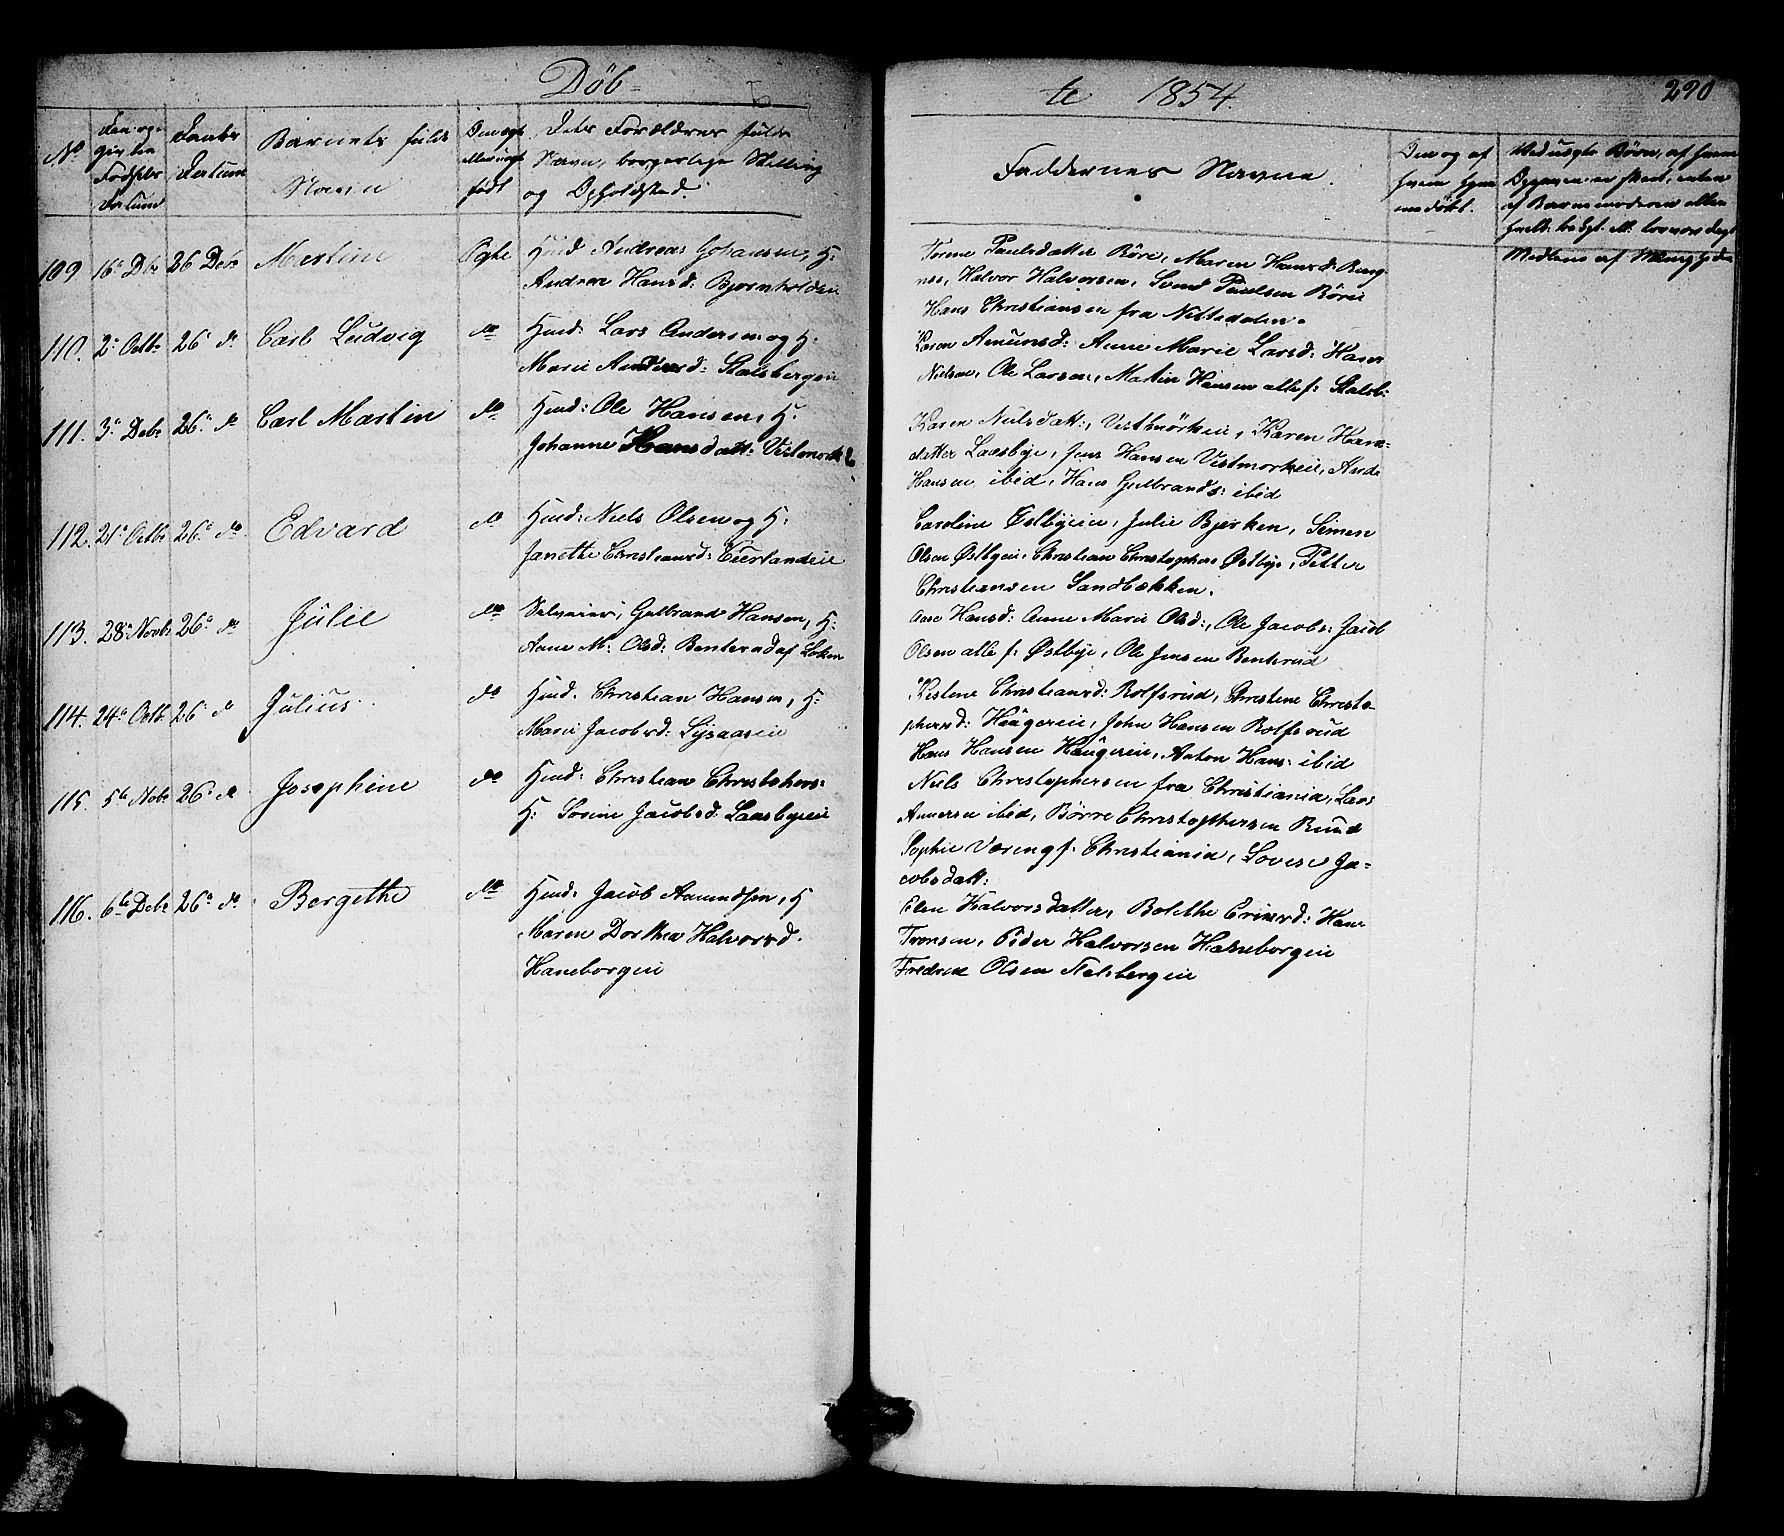 Döb-
te 1854
290
No
Den op-
given
Fødsels
Datum
Daabs
Datum
Barnets fulde
Navn
Om ægte
eller uægte
født
Dets Forældres fulde
Navn, borgerlige Stilling
og Opholdsted.
Faddernes Navne.
Om og af
hvem hjem
medøbt.
109 16de Dbr 26 Debr Martine Ægte
Andreas Johansen, H:
Andrea Hansd: Bjørnholdeie
Torine Paulsdatter Böre, Maren Hansd:
Halvor Halvorsen, Svend Paulsen Börie
Hans Christiansen fra Nittedalen.
110. 2de Octbr 26 do Carl Ludvig do
Huusd: Lars Andersen og H:
Marie Amundsd: Stalsbergeie
Karen Amunsd: Anne Marie Larsd: Hans
Nielsen, Ole Larsen, Martin Hansen alle f: Stalsb:
111. 3de Debr 26de do Carl Martin do
Huusd: Ole Hansen, H:
Johanne Hansdatt:
Karen Nielsdatt:, Vestmörkeie, Karen Hans-
datter Laasbye, Jens Hansen Vestmorkeie, Ande
Hansen ibid, Hans Gulbrands: ibid
112. 21de Octbr 26de do Edvard do
Huusd: Niels Olsen og H:
Janette Christiansd:
Caroline Østbyeie, Julie Bjerken, Simen
Olsen Østbyeie, Christian Christophers Østbye, Petter
Christiansen Sandbækken.
113. 28de Novbr 26de do Julie do
Selveier, Gulbrand Hansen, H:
Anne M: Olsd: Benterud af Løken
Aase Hansd: Anne Marie Olsd:, Ole Jacobs: Jacob
Olsen alle f: Østbye, Ole Jensen Benterud
114. 24de Octb. 26 do Julius do
Huusd. Christian Hansen, H:
Marie Jacobsd:
Christiansd: Rolfsrud, Christine Christo-
phersd: Haugereie, John Hansen Rolfsrud
Hans Hansen Haugereie, Anton Hans: ibid
115. 5te Nobr 26 do Josephine do
Huusd: Christian Christophers:
H: Sovine Jacobsd: Laasbyeeie
Niels Christophersen fra Christiania, Lars
Amersen ibid, Börre Christophersen Ruud
Sophie Væreng f: Christiania, Lovise Ja-
cobsdatt:
116. 6te Debr 26de do Bergethe do
Huusd: Jacob Aamundsen, H
Maren Dorthea Halvorsd.
Haneborgeie
Elen Halvorsdatter, Bolethe Erixsd: Hans
Tronsen, Peder Halvorsen Haneborgeie
Fredrik Olsen Stalsbergeie